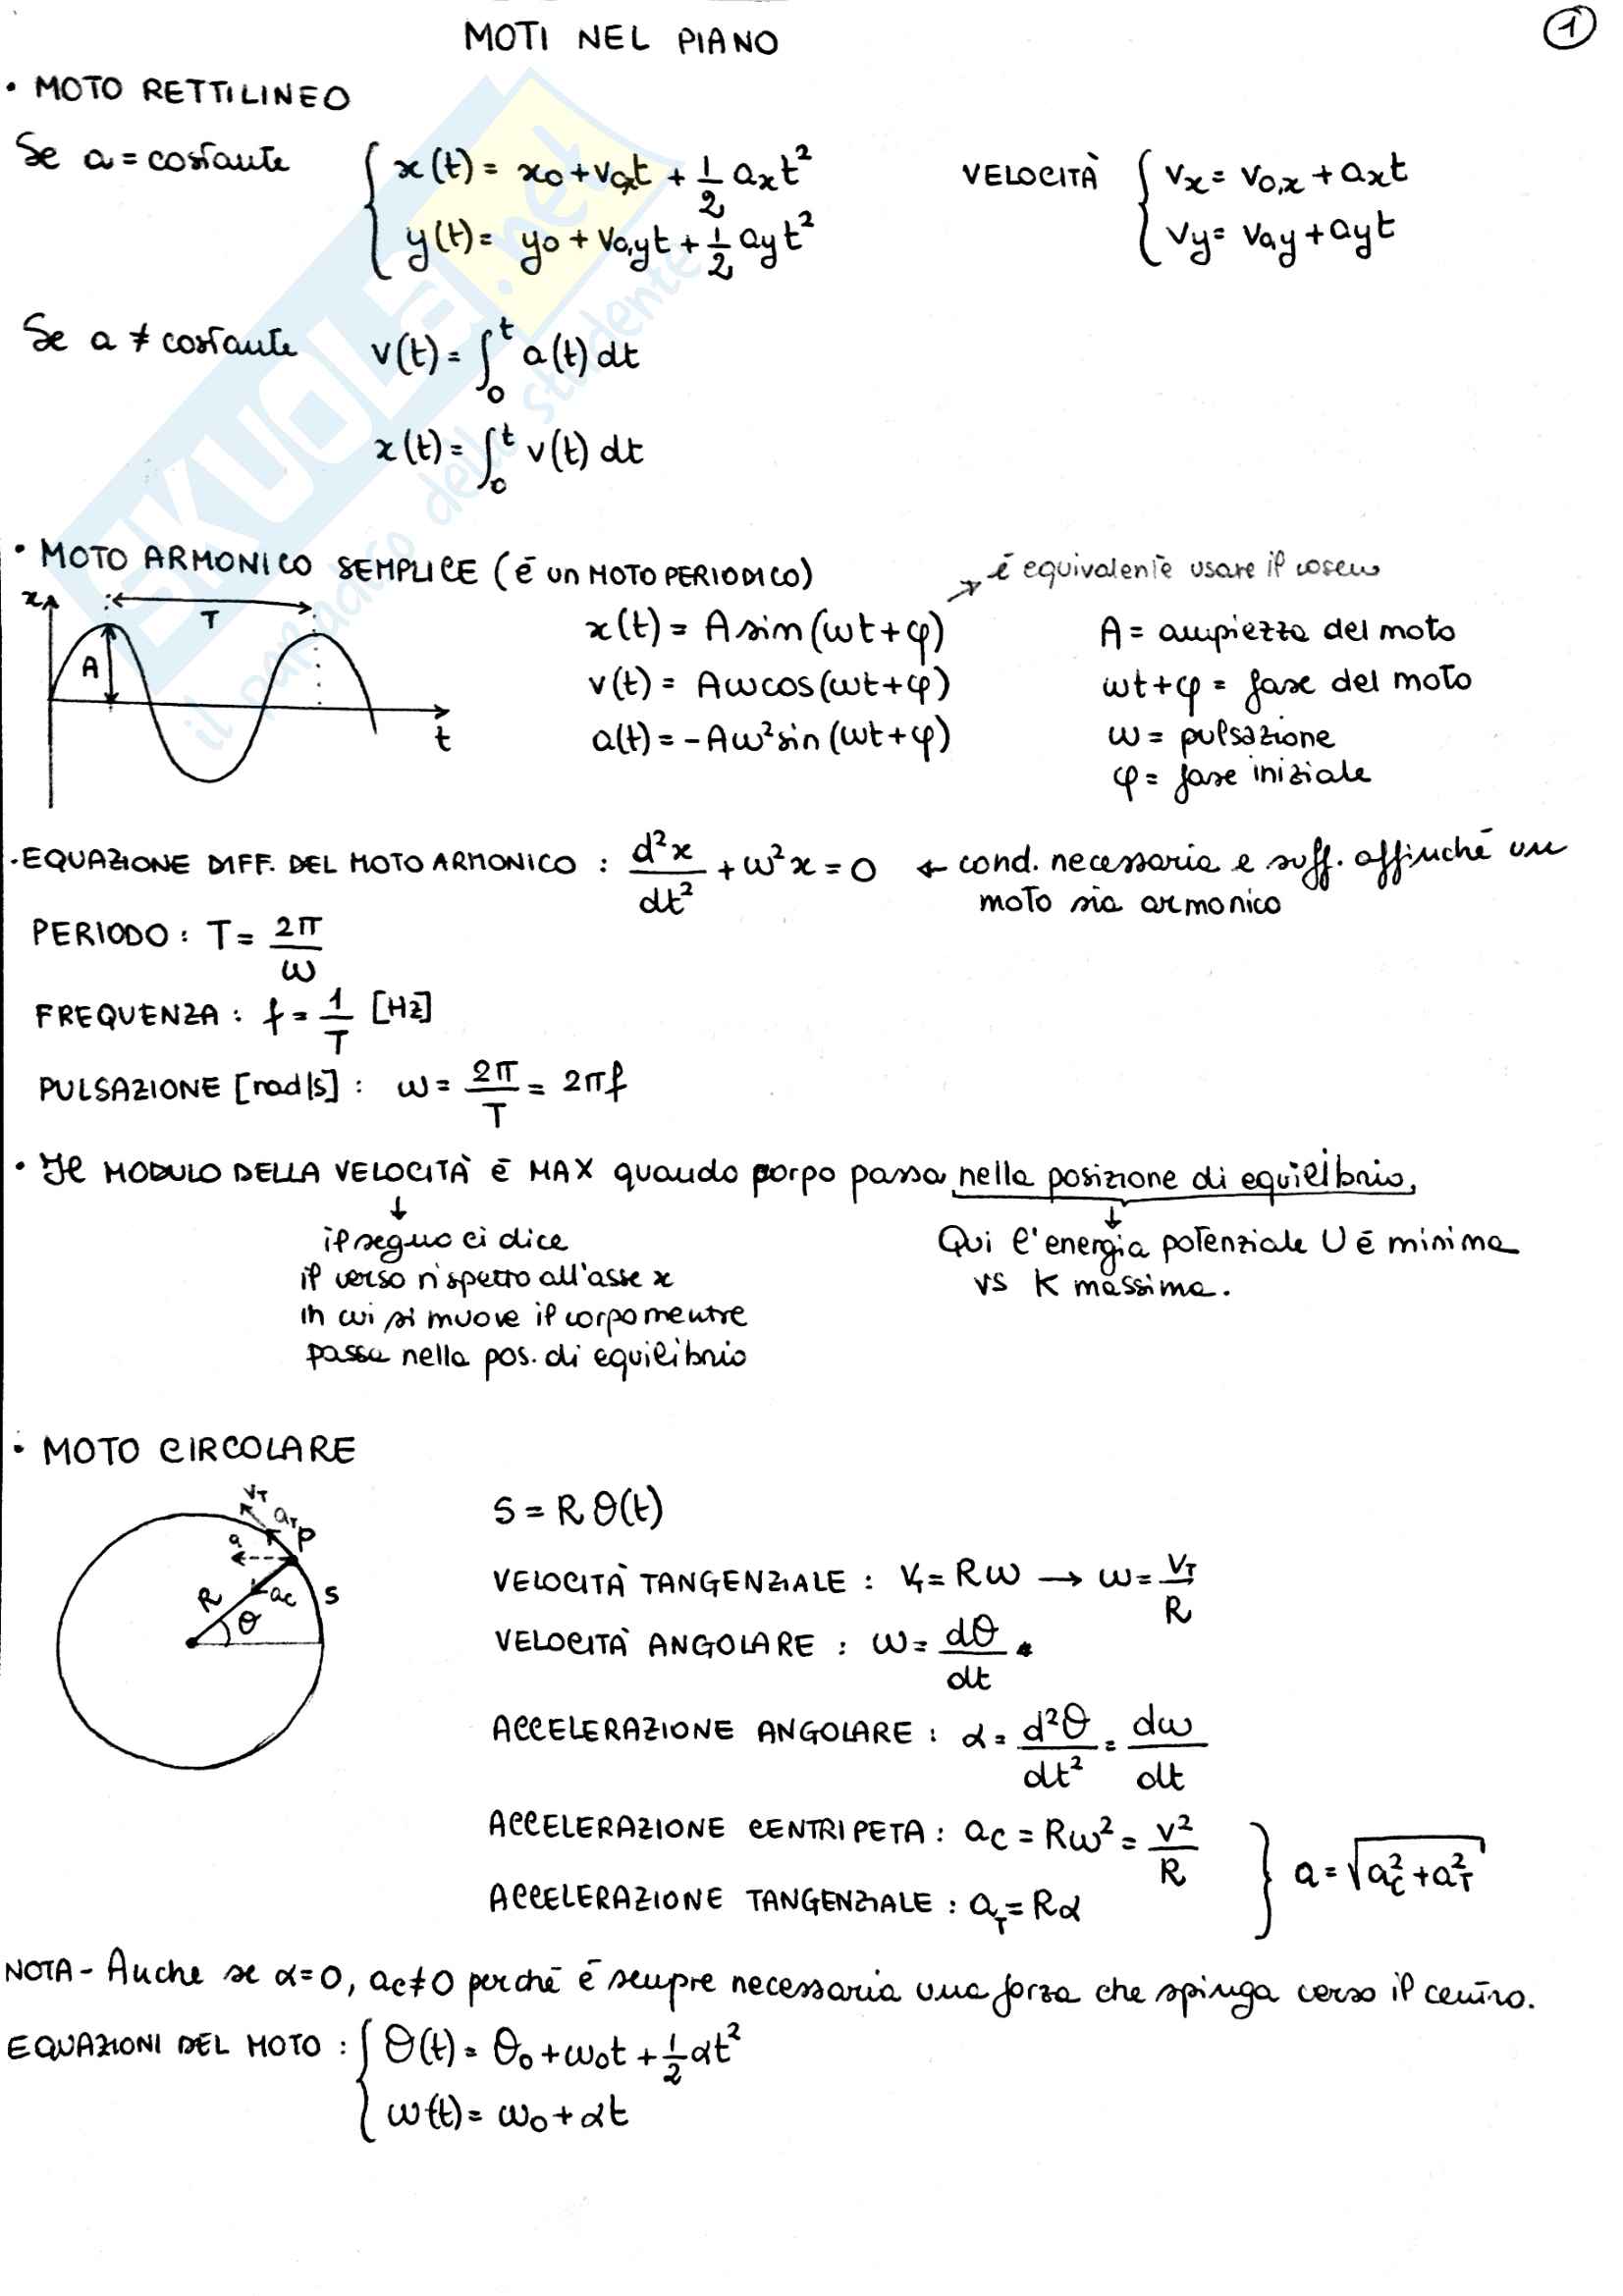 MOTI NEL PIANO
1
• MOTO RETTILINEO
Se a = costante
x(t) = x0 + v0,xt + 1/2 axt²
y(t) = y0 + v0,yt + 1/2 ayt²
VELOCITÀ
vx = v0,x + axt
vy = v0,y + ayt
Se a ≠ costante
v(t) = ∫₀ᵗ a(t) dt
x(t) = ∫₀ᵗ v(t) dt
SKUOLA.net
il paradiso dello studente
• MOTO ARMONICO SEMPLICE (è un MOTO PERIODICO)
è equivalente usare il coseno
x
T
A
t
x(t) = A sin(ωt + φ)
v(t) = Aω cos(ωt + φ)
a(t) = - Aω² sin(ωt + φ)
A = ampiezza del moto
ωt + φ = fase del moto
ω = pulsazione
φ = fase iniziale
• EQUAZIONE DIFF. DEL MOTO ARMONICO : d²x/dt² + ω²x = 0 ← cond. necessaria e suff. affinché un
moto sia armonico
PERIODO : T = 2π/ω
FREQUENZA : f = 1/T [Hz]
PULSAZIONE [rad/s] : ω = 2π/T = 2πf
• Il MODULO DELLA VELOCITÀ è MAX quando corpo passa nella posizione di equilibrio,
↓
il segno ci dice
il verso rispetto all'asse x
in cui si muove il corpo mentre
passa nella pos. di equilibrio
↓
Qui l'energia potenziale U è minima
vs K massima.
• MOTO CIRCOLARE
vT
aT
P
a
ac
R
θ
s
S = R θ(t)
VELOCITÀ TANGENZIALE : vT = Rω → ω = vT/R
VELOCITÀ ANGOLARE : ω = dθ/dt
ACCELERAZIONE ANGOLARE : α = d²θ/dt² = dω/dt
ACCELERAZIONE CENTRIPETA : ac = Rω² = v²/R
ACCELERAZIONE TANGENZIALE : aT = Rα
a = √(ac² + aT²)
NOTA - Anche se α = 0, ac ≠ 0 perché è sempre necessaria una forza che spinga verso il centro.
EQUAZIONI DEL MOTO :
θ(t) = θ0 + ω0t + 1/2 αt²
ω(t) = ω0 + αt